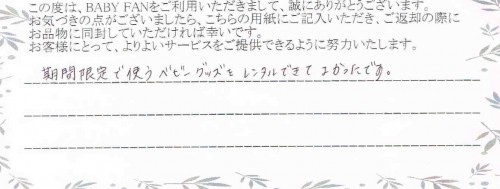 この度は、BABY FANをご利用いただきまして、誠にありがとうございます。
お気づきの点がございましたら、こちらの用紙にご記入いただき、ご返却の際に
お品物に同封していただければ幸いです。
お客様にとって、よりよいサービスをご提供できるように努力いたします。
期間限定で使うベビーグッズをレンタルできてよかったです。